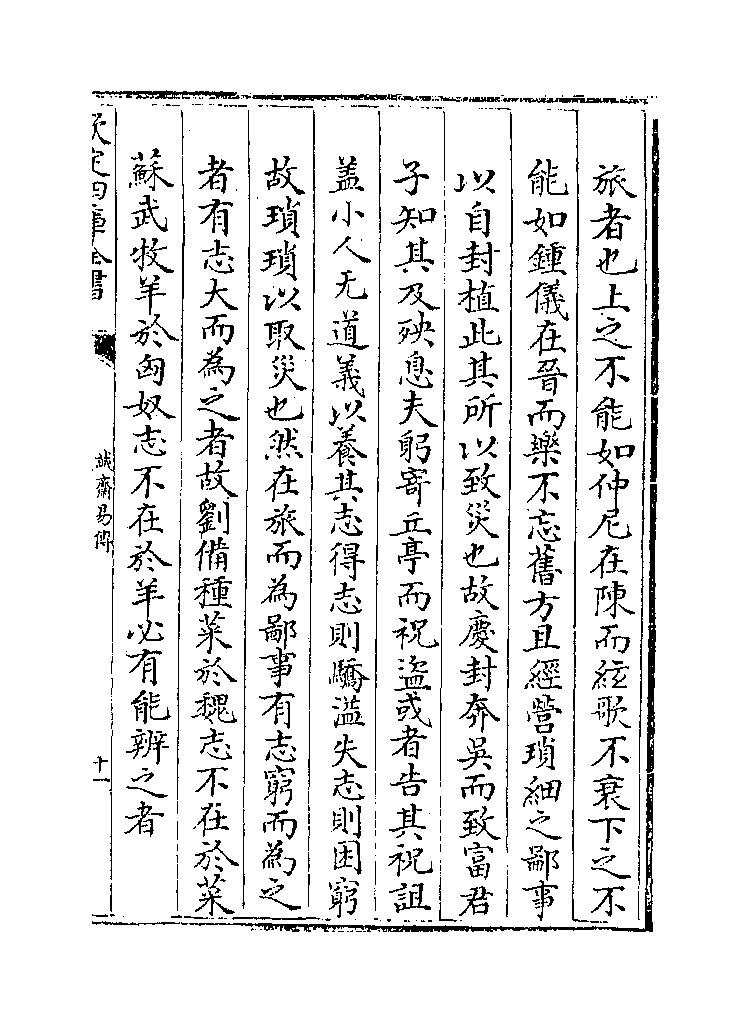 旅者也上之不能如仲尼在陳而絃歌不衰下之不
能如鍾儀在晉而樂不忘舊方且經營瑣細之鄙事
以自封植此其所以致災也故慶封奔吳而致富君
子知其及殃息夫躬寄丘亭而祝盜或者告其祝詛
盖小人无道義以養其志得志則驕溢失志則困窮
故瑣瑣以取災也然在旅而為鄙事有志窮而為之
者有志大而為之者故劉備種菜於魏志不在於菜
蘇武牧羊於匈奴志不在於羊必有能辨之者
欽定四庫全書
誠齋易傳
十一